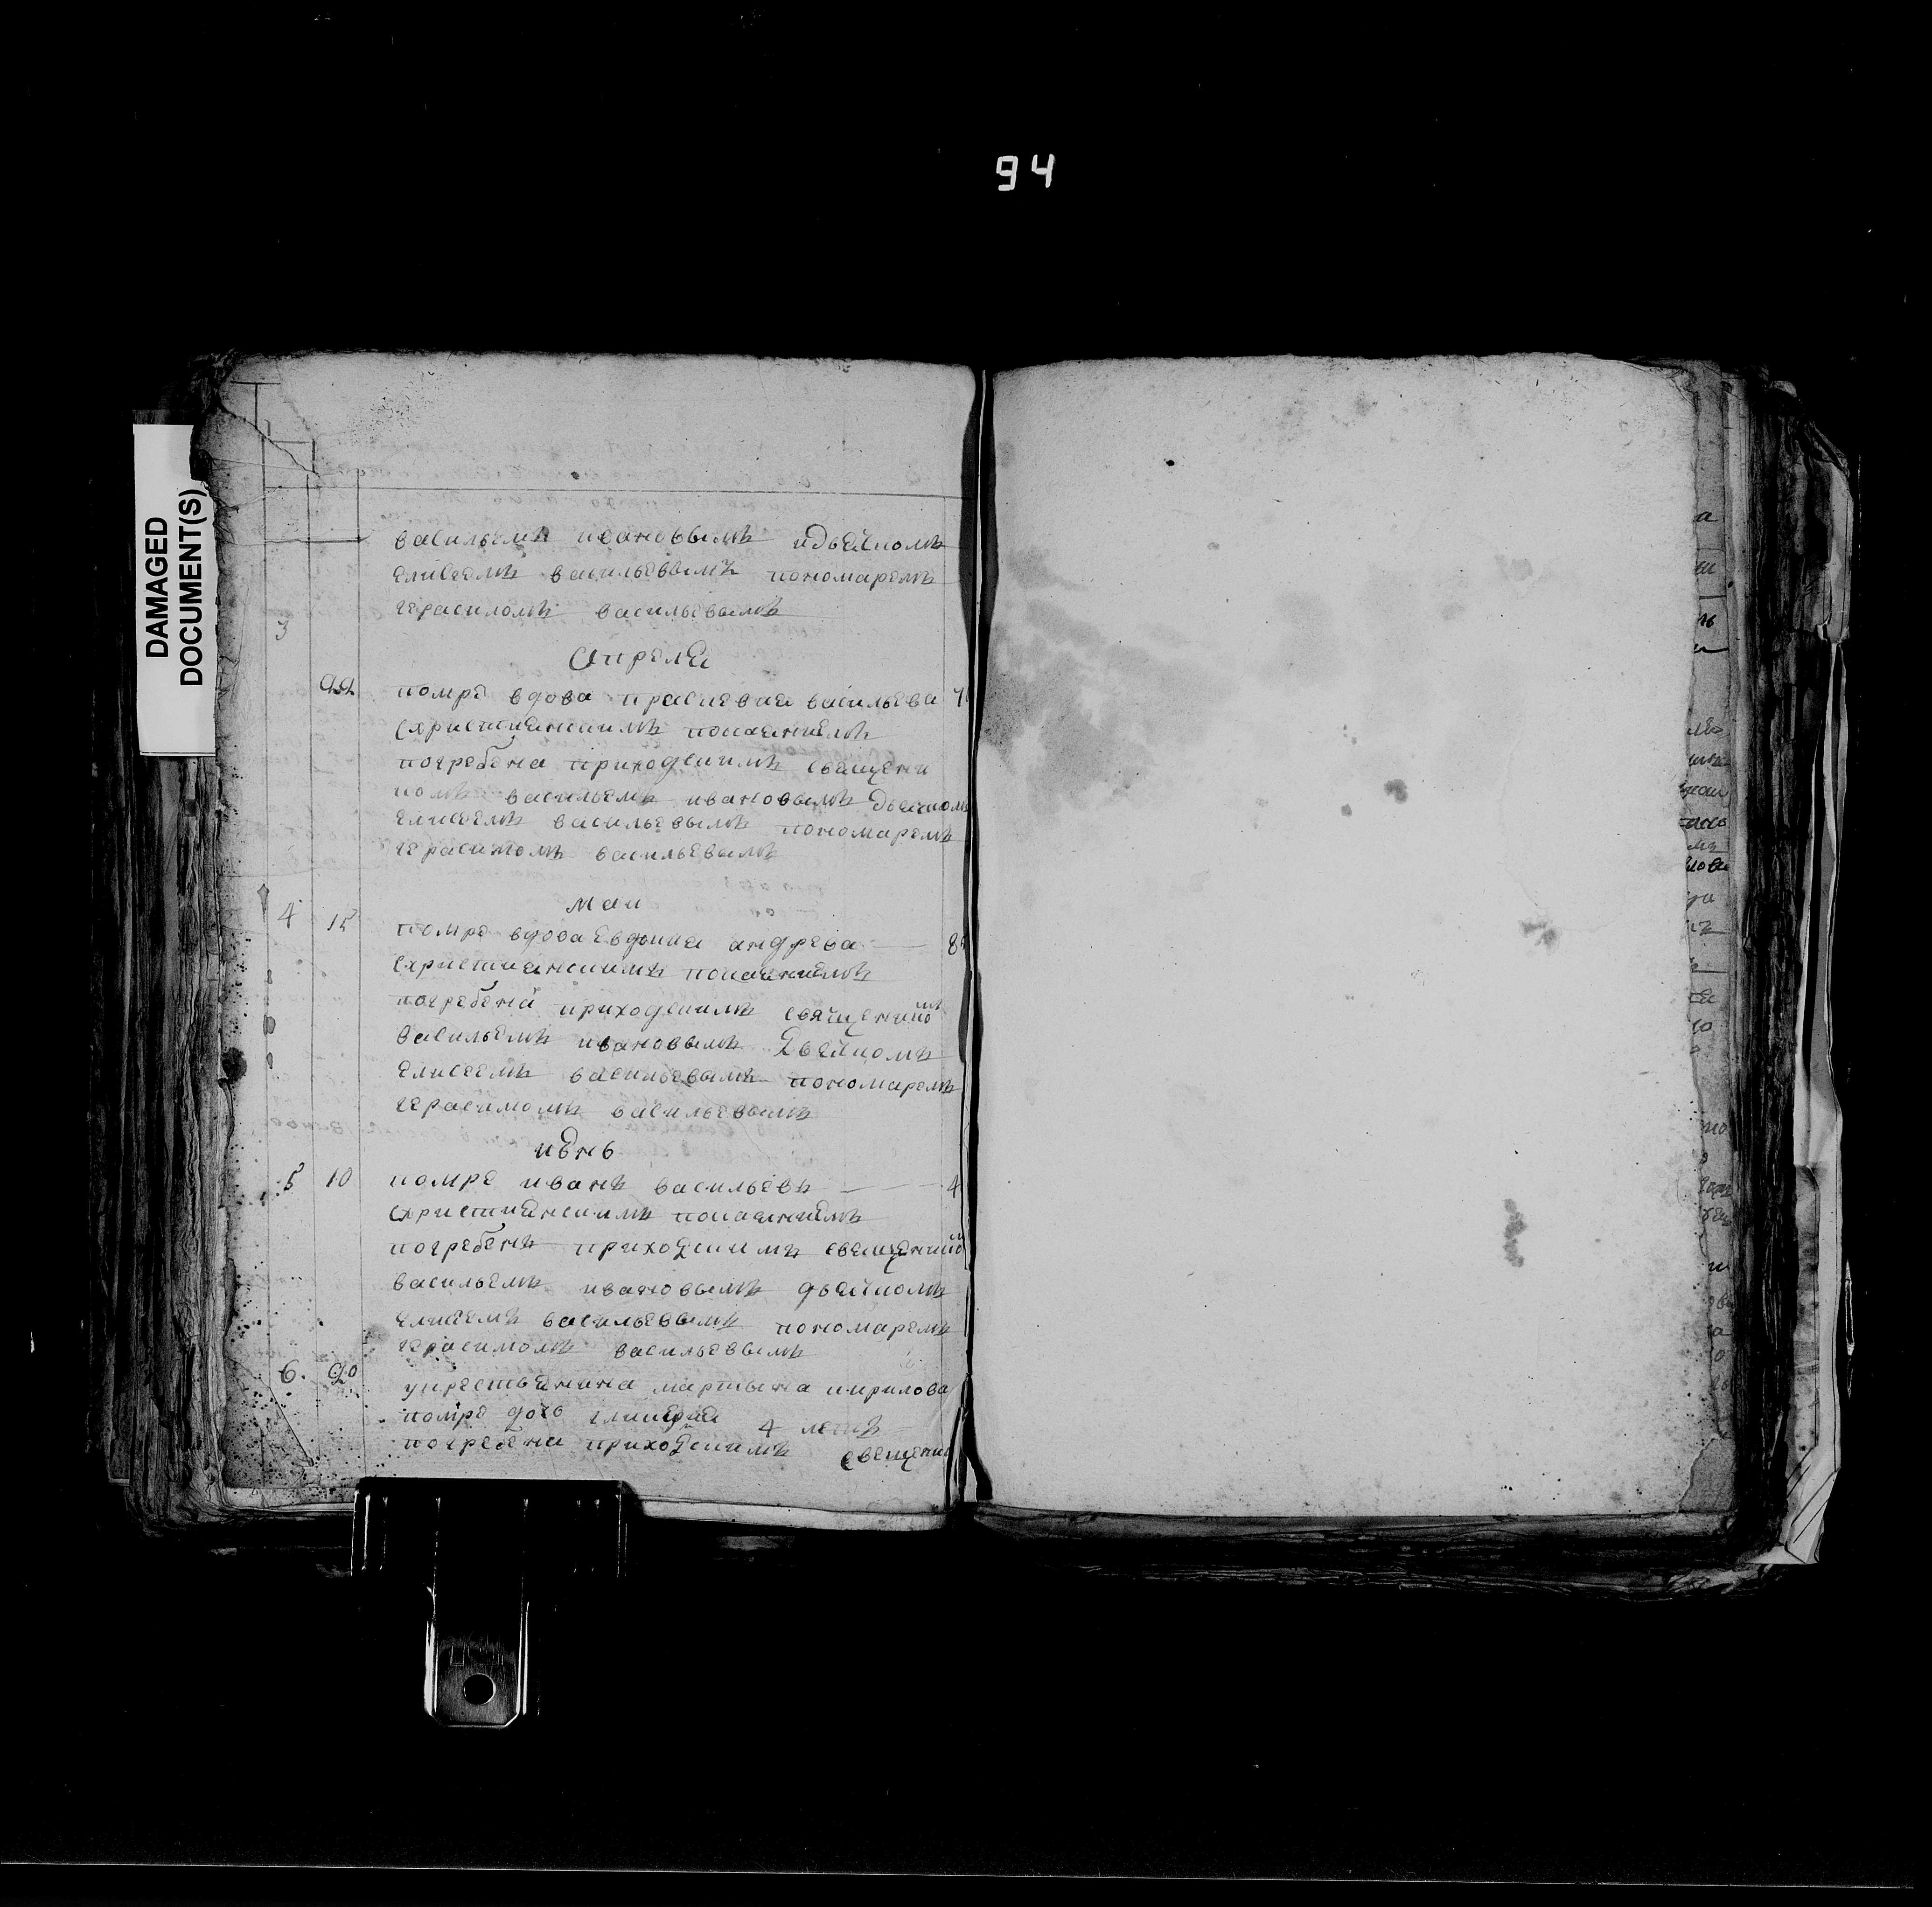 94
DAMAGED
DOCUMENT(S)
васильемъ ивановымъ идьячкомъ
елисеемъ васильевымъ пономаремъ
герасимомъ васильевымъ
3
апреля
22 помре вдова прасковия васильева
схристианскимъ покаяниемъ
погребена приходскимъ свещени
комъ васильемъ ивановымъ дьячкомъ
елисеемъ васильевымъ пономаремъ
герасимомъ васильевымъ
маи
4 15 помре вдова евдокиа андрева
схристианскимъ покаяниемъ
погребена приходскимъ священикомъ
васильемъ ивановымъ дьячкомъ
елисеемъ васильевымъ пономаремъ
герасимомъ васильевымъ
июнь
5 10 помре иванъ васильевъ 4
схристианскимъ покаяниемъ
погребенъ приходскимъ свещеником
васильемъ ивановымъ дьячкомъ
елисеемъ васильевымъ пономаремъ
герасимомъ васильевымъ
6. 20 укрестьянина мартына кирилова
помре дочь гликерия 4 летъ
погребена приходскимъ свещени